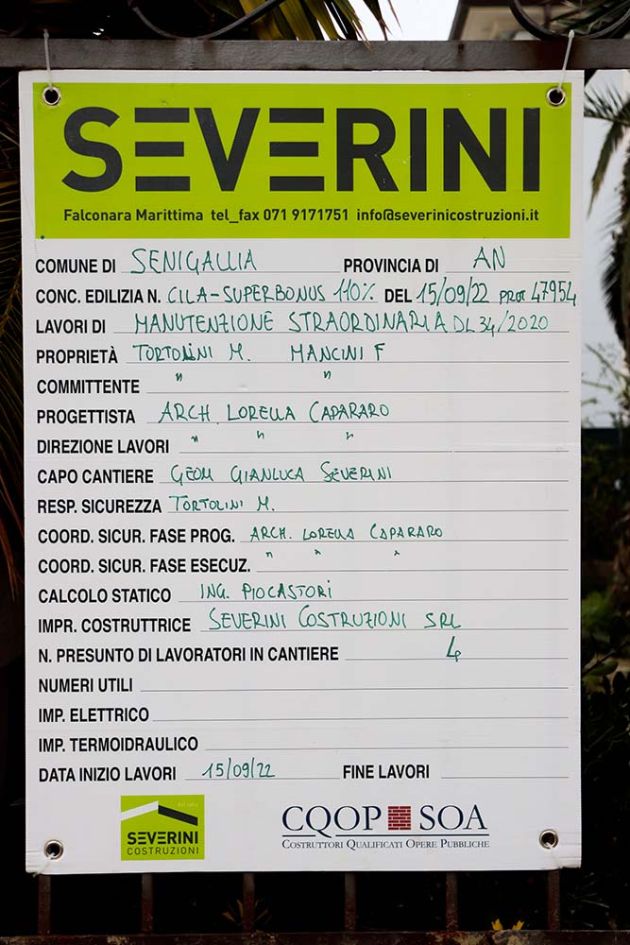 SEVERINI
Falconara Marittima tel_fax 071 9171751 info@severinicostruzioni.it
COMUNE DI SENIGALLIA PROVINCIA DI AN
CONC. EDILIZIA N. CILA-SUPERBONUS 110% DEL 15/09/22 PROT 47954
LAVORI DI MANUTENZIONE STRAORDINARIA DL 34/2020
PROPRIETÀ TORTOLINI M. MANCINI F
COMMITTENTE " "
PROGETTISTA ARCH. LORELLA CAPARARO
DIREZIONE LAVORI " " "
CAPO CANTIERE GEOM GIANLUCA SEVERINI
RESP. SICUREZZA TORTOLINI M.
COORD. SICUR. FASE PROG. ARCH. LORELLA CAPARARO
COORD. SICUR. FASE ESECUZ. " " "
CALCOLO STATICO ING. PIOCASTORI
IMPR. COSTRUTTRICE SEVERINI COSTRUZIONI SRL
N. PRESUNTO DI LAVORATORI IN CANTIERE 4
NUMERI UTILI
IMP. ELETTRICO
IMP. TERMOIDRAULICO
DATA INIZIO LAVORI 15/09/22 FINE LAVORI
SEVERINI
COSTRUZIONI
CQOP SOA
COSTRUTTORI QUALIFICATI OPERE PUBBLICHE